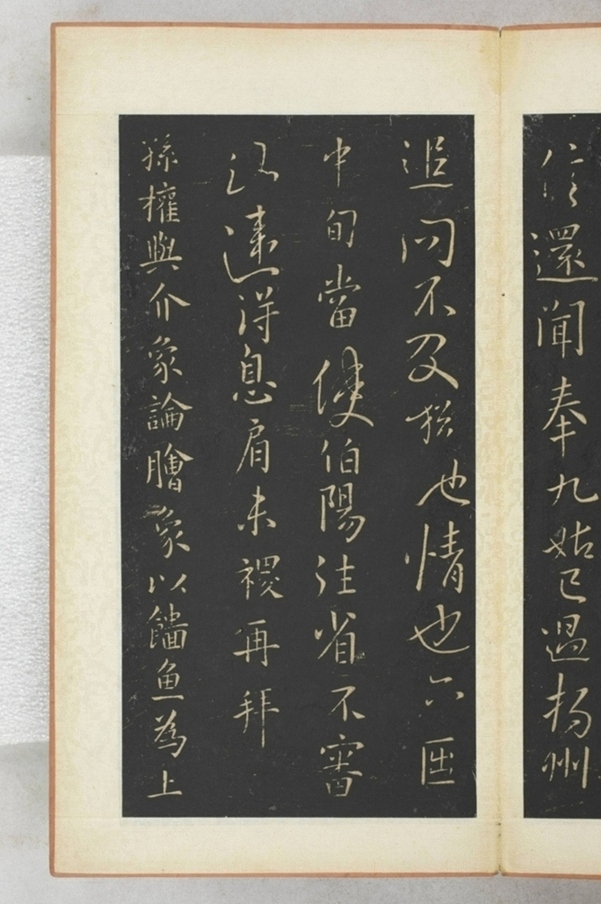 還聞奉九姑已過揚州
追問不及於也情也六
中旬當使伯陽往省不審
遠得息肩未禝再拜
孫權與介象論膾象以鯔魚為上